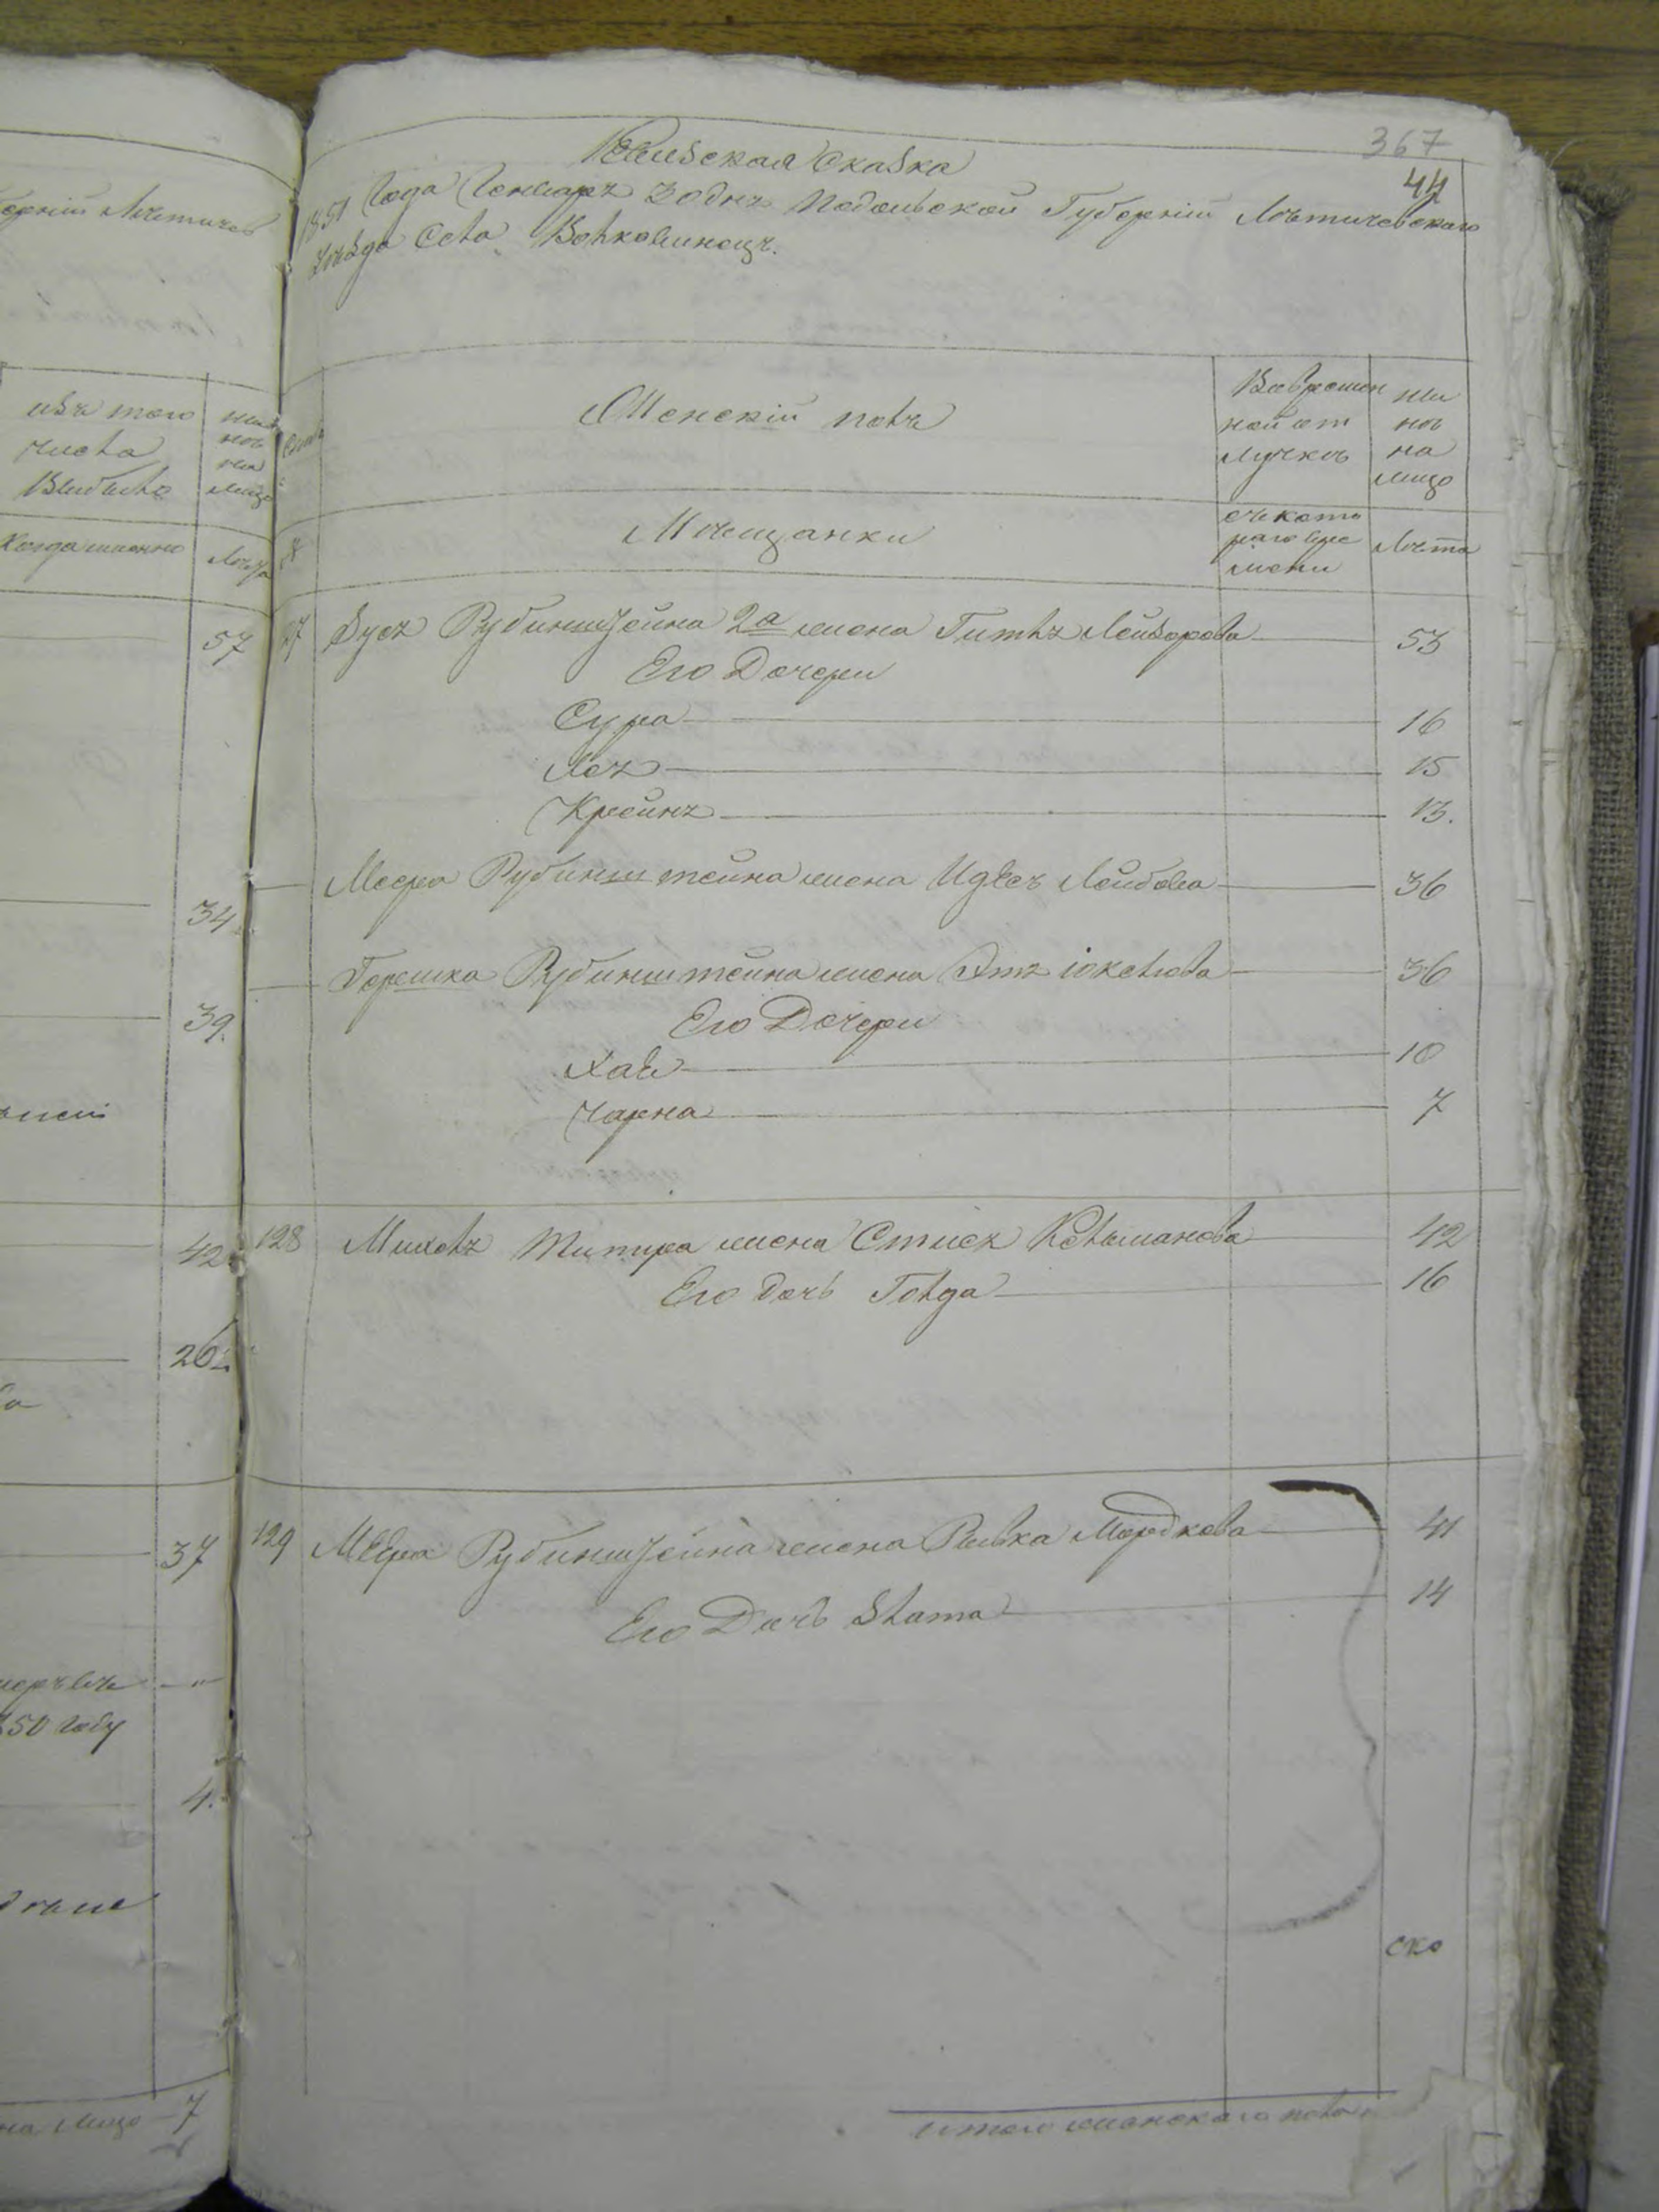 367
44
Ревизская Сказка
1851 Года Генваря 30 дня Подольской Губерніи Летичевскаго
Уезда Села Волковинецъ.
Женскій полъ
Вовремен
ной от
лучке
ны
не
на
лицо
Мещанки
съ кото
раго вре
мени
Лета
27 Зуся Рубинштейна 2а жена Гитля Лейзорова 53
Его Дочери
Сура 16
Лея 15
Крейня 13.
Меера Рубинштейна жена Идесъ Лейбова 36
Гершка Рубинштейна жена Этя іокелюва 36
Его Дочери
Хаве 10
Чарна 7
128 Михеля Шипира жена Стися Кельманова 42
Его дочь Голда 16
129 Меера Рубинштейна жена Ривка Мордкова 41
Его Дочь Злата 14
ско
итого женскаго пола
ерніи Летичев
изъ того
числа
Выбыло
ны
не
на
лицо
Когда именно
Лета
57
34
39.
42.
26
37
850 Году
4.
на лицо 7